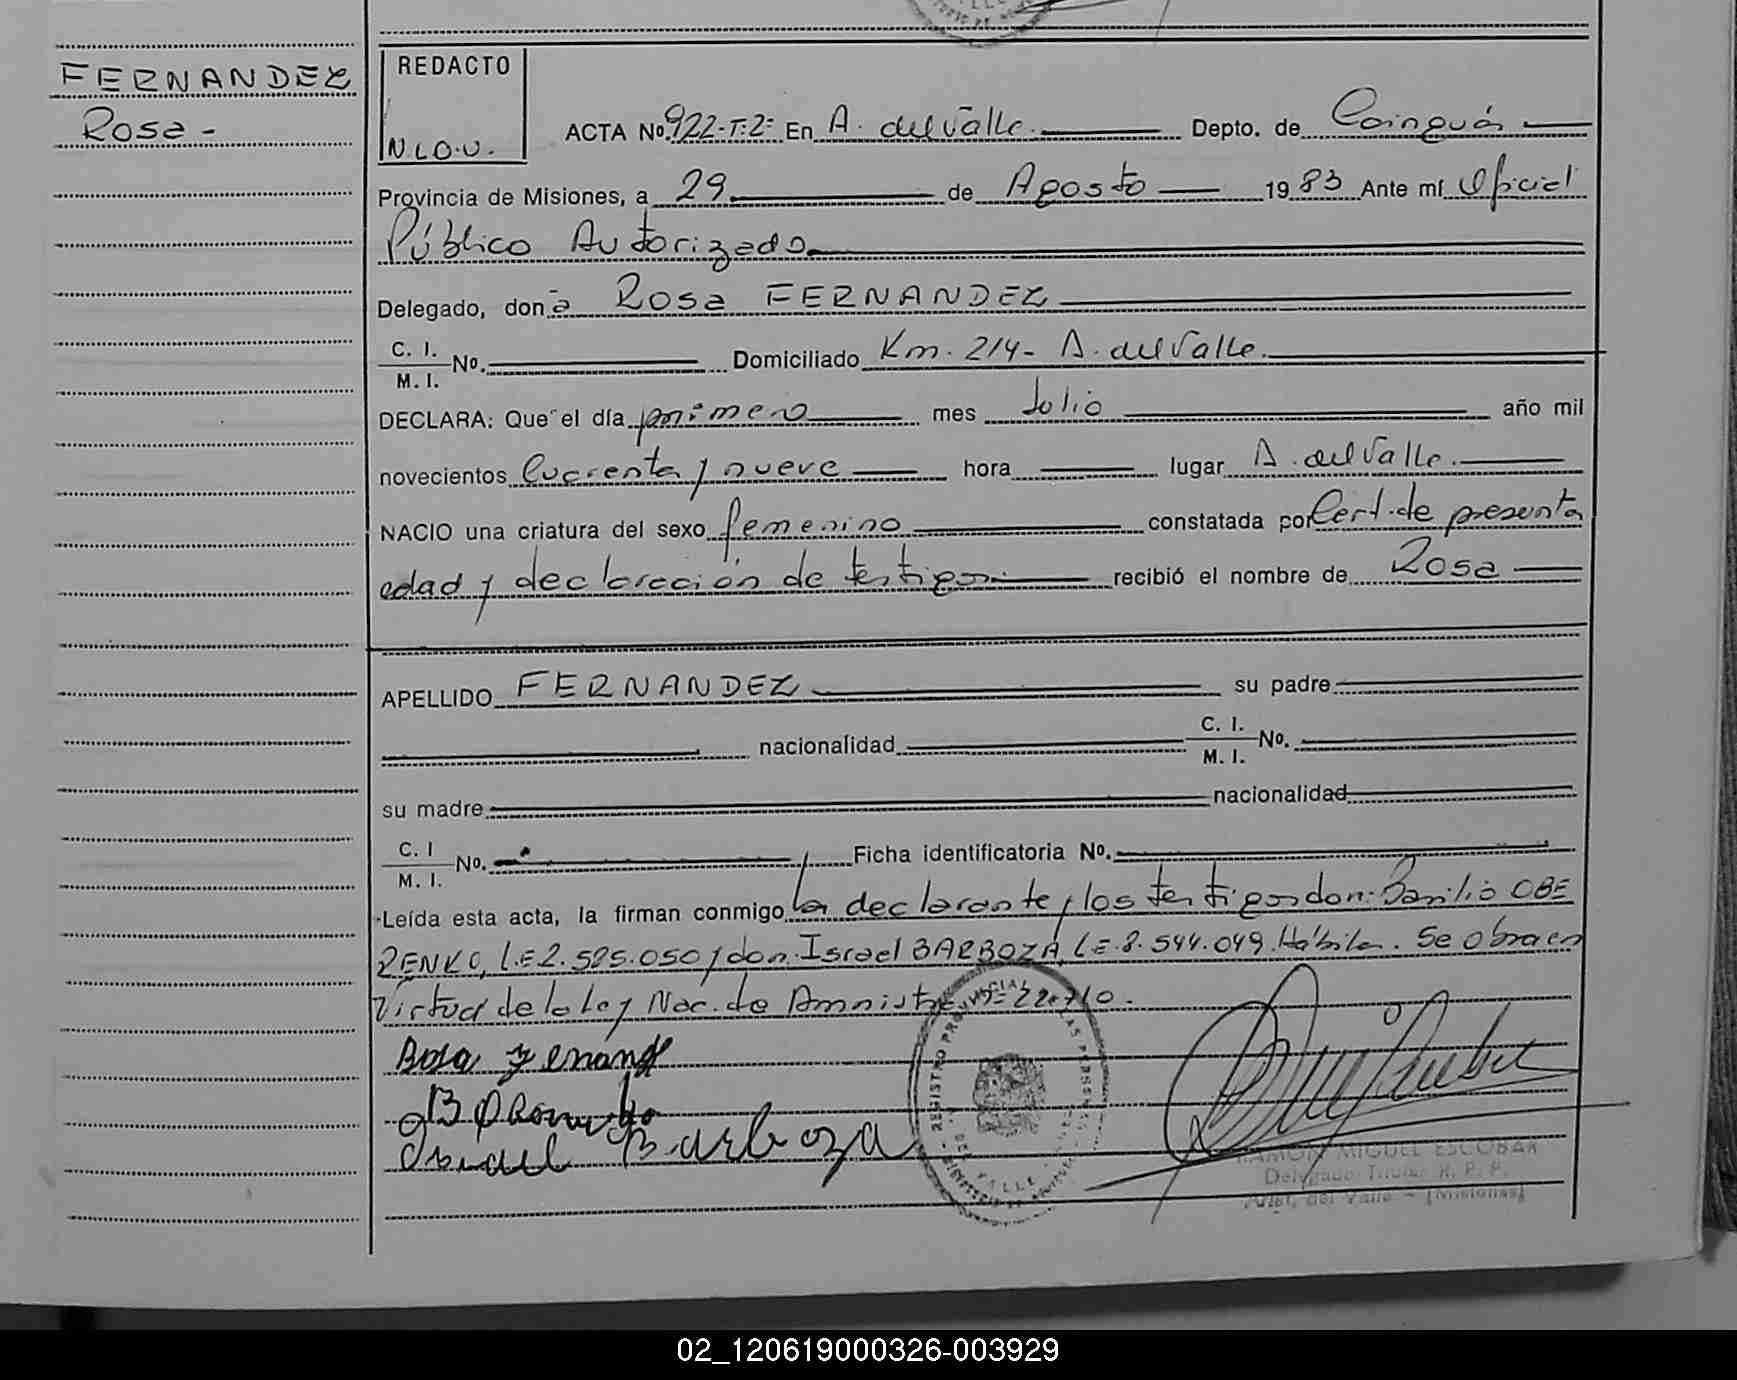 FERNANDEZ
Rosa -
REDACTO
N.L.O.V.
ACTA No. 922-T:2º En A. del Valle. Depto. de Cainguás
Provincia de Misiones, a 29 de Agosto 1983 Ante mí Oficial
Público Autorizado
Delegado, don a Rosa FERNANDEZ
C. I. M. I. No. Domiciliado Km. 214- A. del Valle.
DECLARA: Que el día primero mes Julio año mil
novecientos Cuarenta y nueve hora lugar A. del Valle.
NACIO una criatura del sexo femenino constatada por Cert. de presunta
edad y declaración de testigos recibió el nombre de Rosa
APELLIDO FERNANDEZ su padre
nacionalidad C. I. M. I. No.
su madre nacionalidad
C. I M. I. No. Ficha identificatoria No.
Leída esta acta, la firman conmigo la declarante y los testigos don: Basilio OBE
RENKO, L.E 2.525.050 y don. Israel BARBOZA, L.E. 8.544.049. Hábiles. Se obra en
Virtud de la Ley Nac. de Amnistía Nº 22.710.
Rosa Fernande
Israel Barboza
REGISTRO PROVINCIAL LAS PERSONAS
RAMON MIGUEL ESCOBAR
Delegado Titular R. P. P.
Arist. del Valle - (Misiones)
02_120619000326-003929